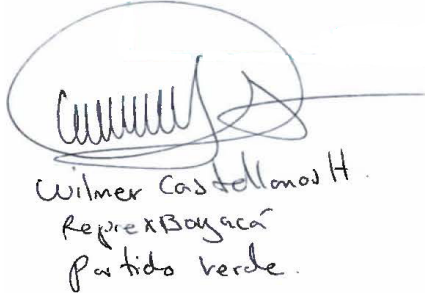 Wilmer Castellanos H.
Repre x Boyacá
Partido Verde.